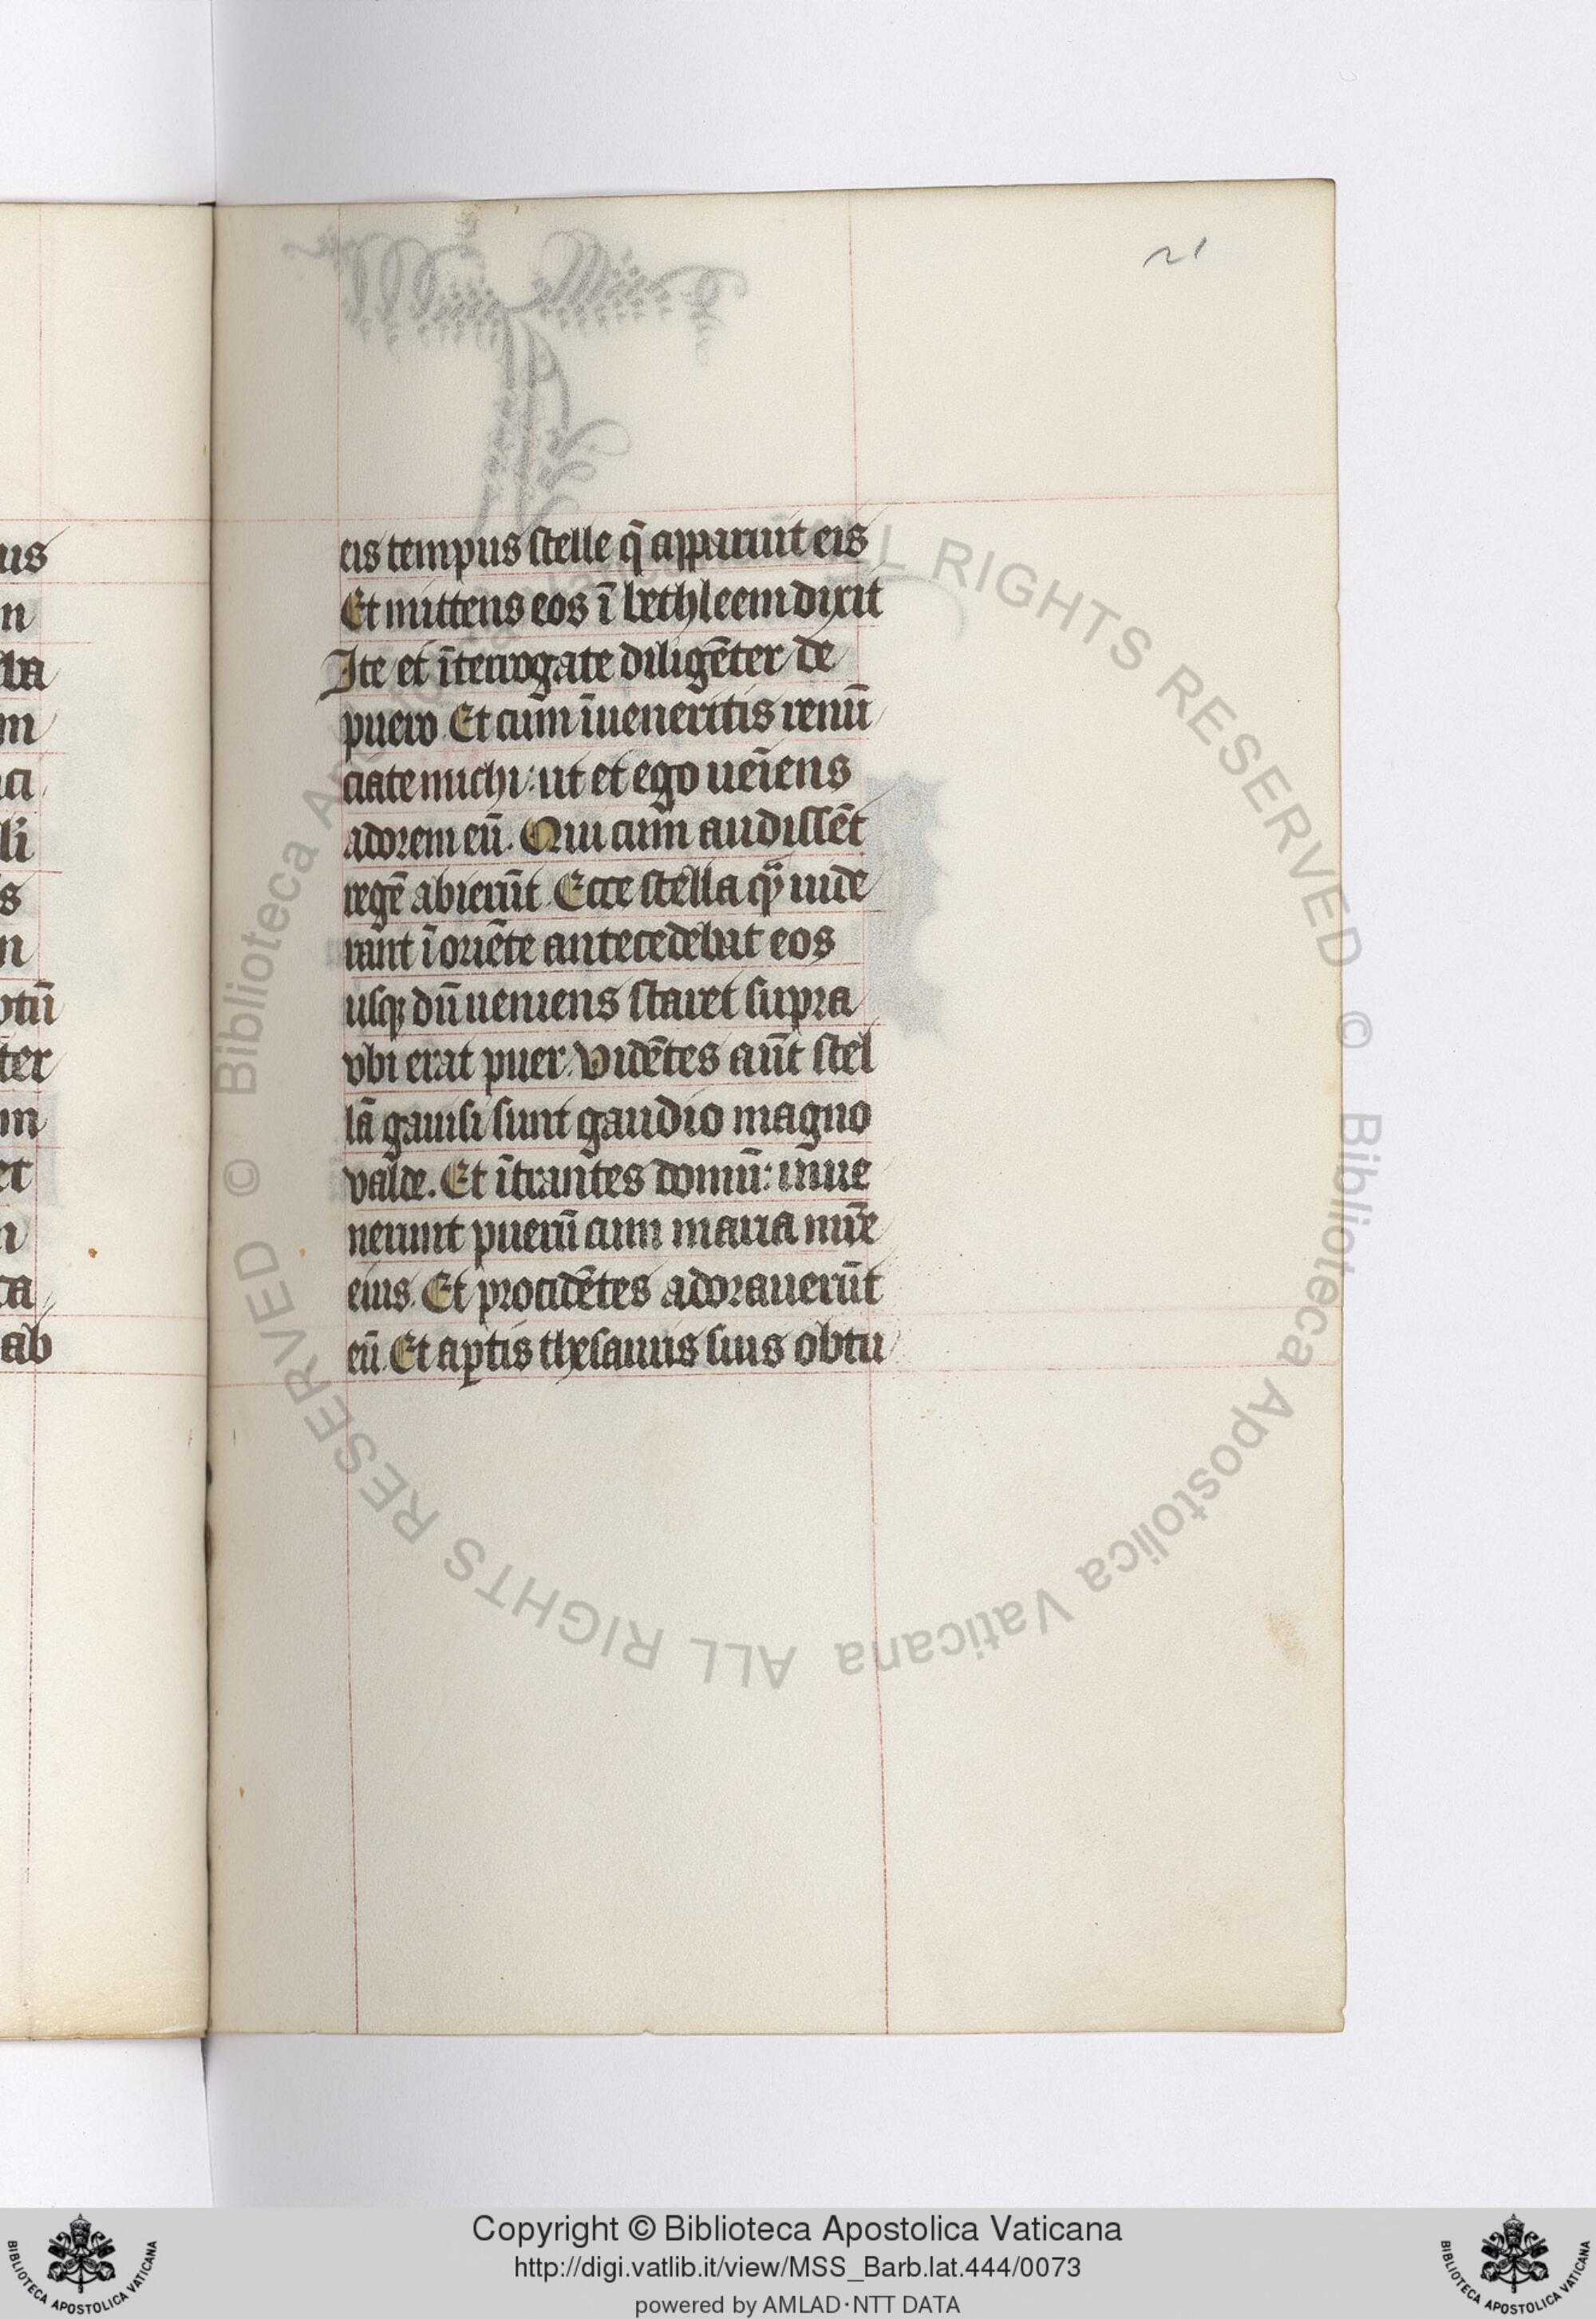 21
us
n
la
m
ci
li
s
n
ptū
ter
m
et
n
ta
ab
eis tempus stelle q̄ apparuit eis
Et mittens eos ī bethleem dixit
Ite et īterrogate diligēter de
puero. Et cum īueneritis renū
ciate michi: ut et ego ueīens
adorem eū. Qui cum audissēt
regē abierūt. Ecce stella qᷓ uide
rant ī oriēte antecedebat eos
usqꝫ dū ueniens staret supra
vbi erat puer. Vidētes aūt stel
lā gauisi sunt gaudio magno
valde. Et ītrantes domū: inue
nerunt puerū cum maria mr̄e
eius. Et procidētes adorauerūt
eū. Et aꝑtis thesauris suis obtu
© Biblioteca Apostolica Vaticana ALL RIGHTS RESERVED © Biblioteca Apostolica Vaticana ALL RIGHTS RESERVED
Copyright © Biblioteca Apostolica Vaticana
http://digi.vatlib.it/view/MSS_Barb.lat.444/0073
powered by AMLAD·NTT DATA
BIBLIOTECA APOSTOLICA VATICANA
BIBLIOTECA APOSTOLICA VATICANA